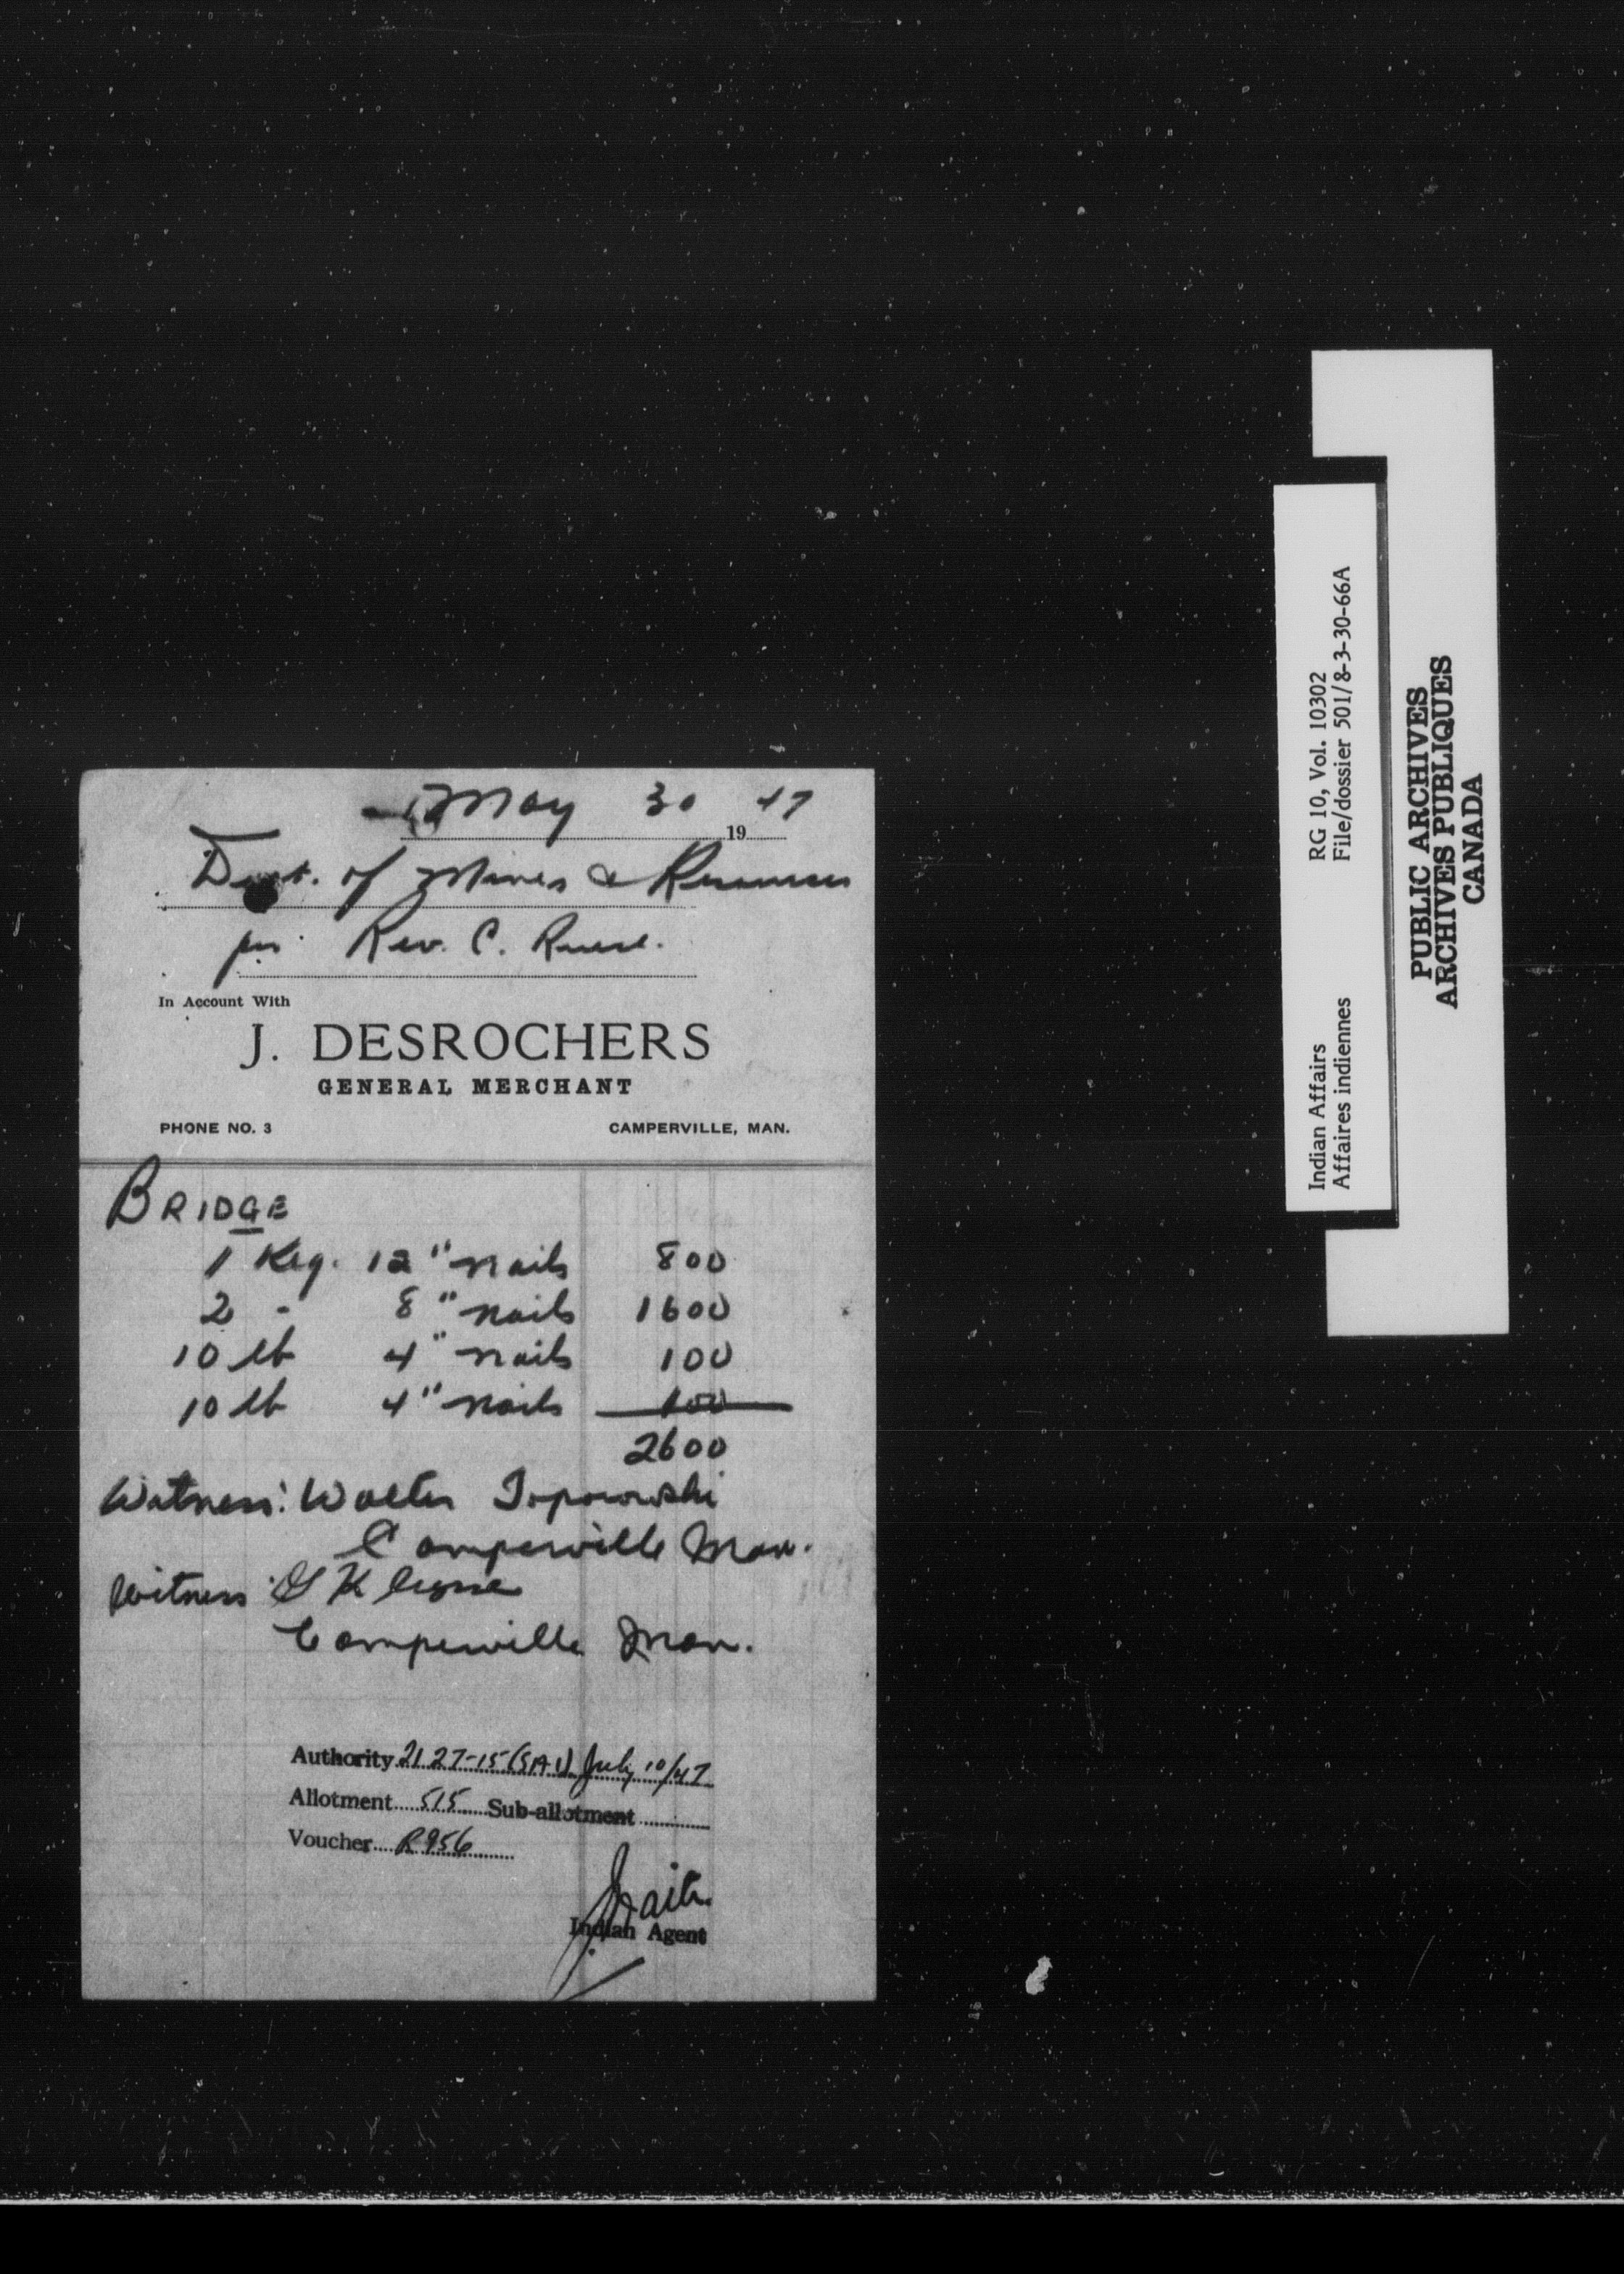 May 30 1947
Dept. of Mines & Resources
per Rev. C.
In Account With
J. DESROCHERS
GENERAL MERCHANT
PHONE NO. 3 CAMPERVILLE, MAN.
BRIDGE
1 Keg. 12" nails 800
2 - 8" nails 1600
10 lb 4" nails 100
10 lb 4" nails 100
2600
Witness: Walter
Camperville Man.
Witness:
Camperville Man.
Authority 2127-15 (SA1) July 10/47
Allotment 515 Sub-allotment
Voucher R956
Indian Agent
Indian Affairs RG 10, Vol. 10302
Affaires indiennes File/dossier 501/8-3-30-66A
PUBLIC ARCHIVES
ARCHIVES PUBLIQUES
CANADA